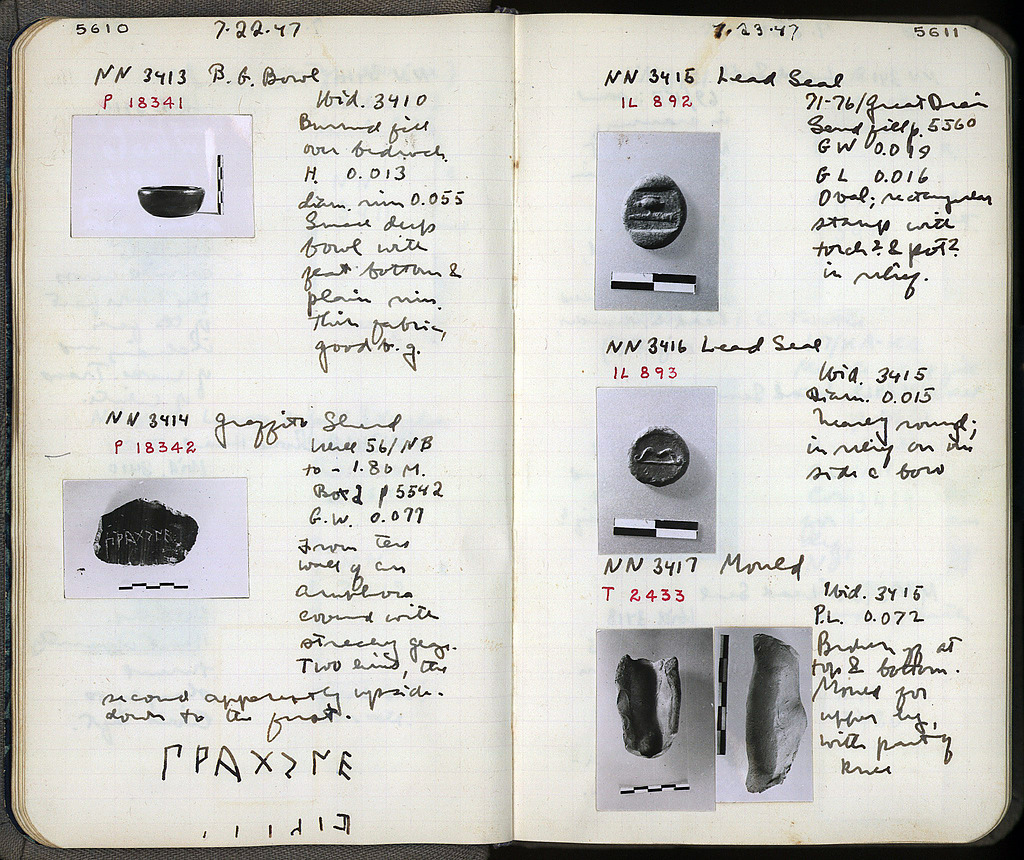 5610 7·22·47
NN 3413 B.G. Bowl
P 18341
Ibid. 3410
Burned fill
over bedrock.
H. 0.013
diam. rim 0.055
Small deep
bowl with
flat bottom &
plain rim.
Thin fabric,
good b.g.
NN 3414 Graffito Sherd
P 18342
Well 56/NB
to - 1.80 M.
Box 2 p 5542
G.W. 0.077
From the
wall of an
Amphora
covered with
streaky
Two lines, the
second apparently upside-
down to the first.
7·23·47 5611
NN 3415 Lead Seal
IL 892
71-76/Great Drain
Sand fill p. 5560
GW 0.019
GL 0.016
Oval; rectangular
stamp with
torch? & pot?
in relief.
NN 3416 Lead Seal
IL 893
Ibid. 3415
Diam. 0.015
Nearly round;
in relief on one
side a bow
NN 3417 Mould
T 2433
Ibid. 3415
P.L. 0.072
Broken off at
top & bottom.
Mould for
upper leg,
with part of
knee